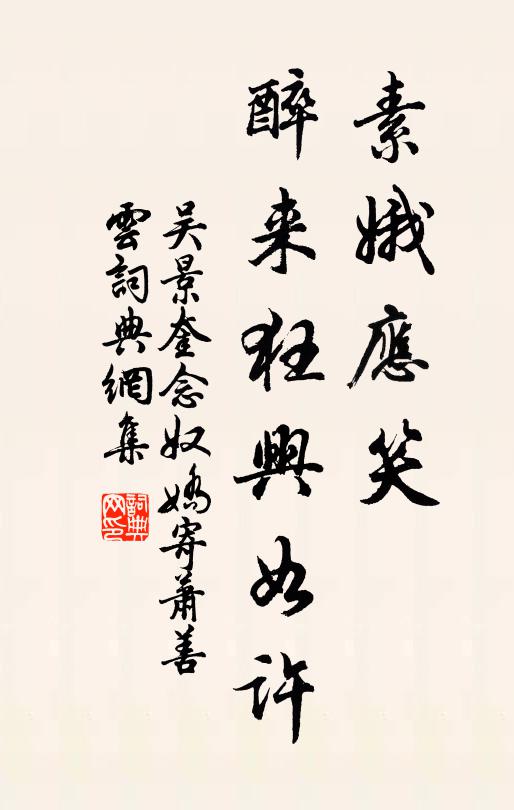 素娥應笑
醉来狂興如許
吴景奎念奴嬌寄蕭善
雲詞典網集
詞典
网印